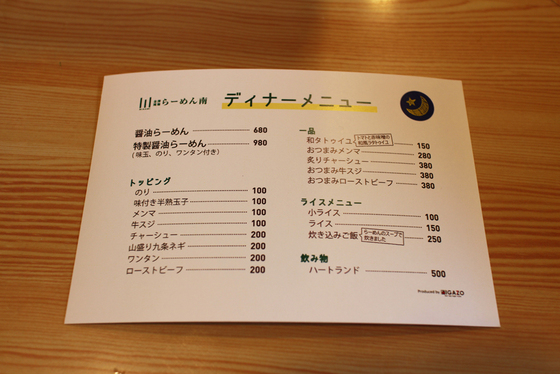 らーめん南
ディナーメニュー
醤油らーめん 680
特製醤油らーめん 980
(味玉、のり、ワンタン付き)
トッピング
のり 100
味付き半熟玉子 100
メンマ 100
牛スジ 100
チャーシュー 200
山盛り九条ネギ 200
ワンタン 200
ローストビーフ 200
一品
和タトゥイユ トマトとお味噌の 150
和風ラタトゥイユ
おつまみメンマ 280
炙りチャーシュー 380
おつまみ牛スジ 380
おつまみローストビーフ 380
ライスメニュー
小ライス 100
ライス 150
炊き込みご飯 らーめんのスープで 250
炊きました
飲み物
ハートランド 500
Produced by GAZO